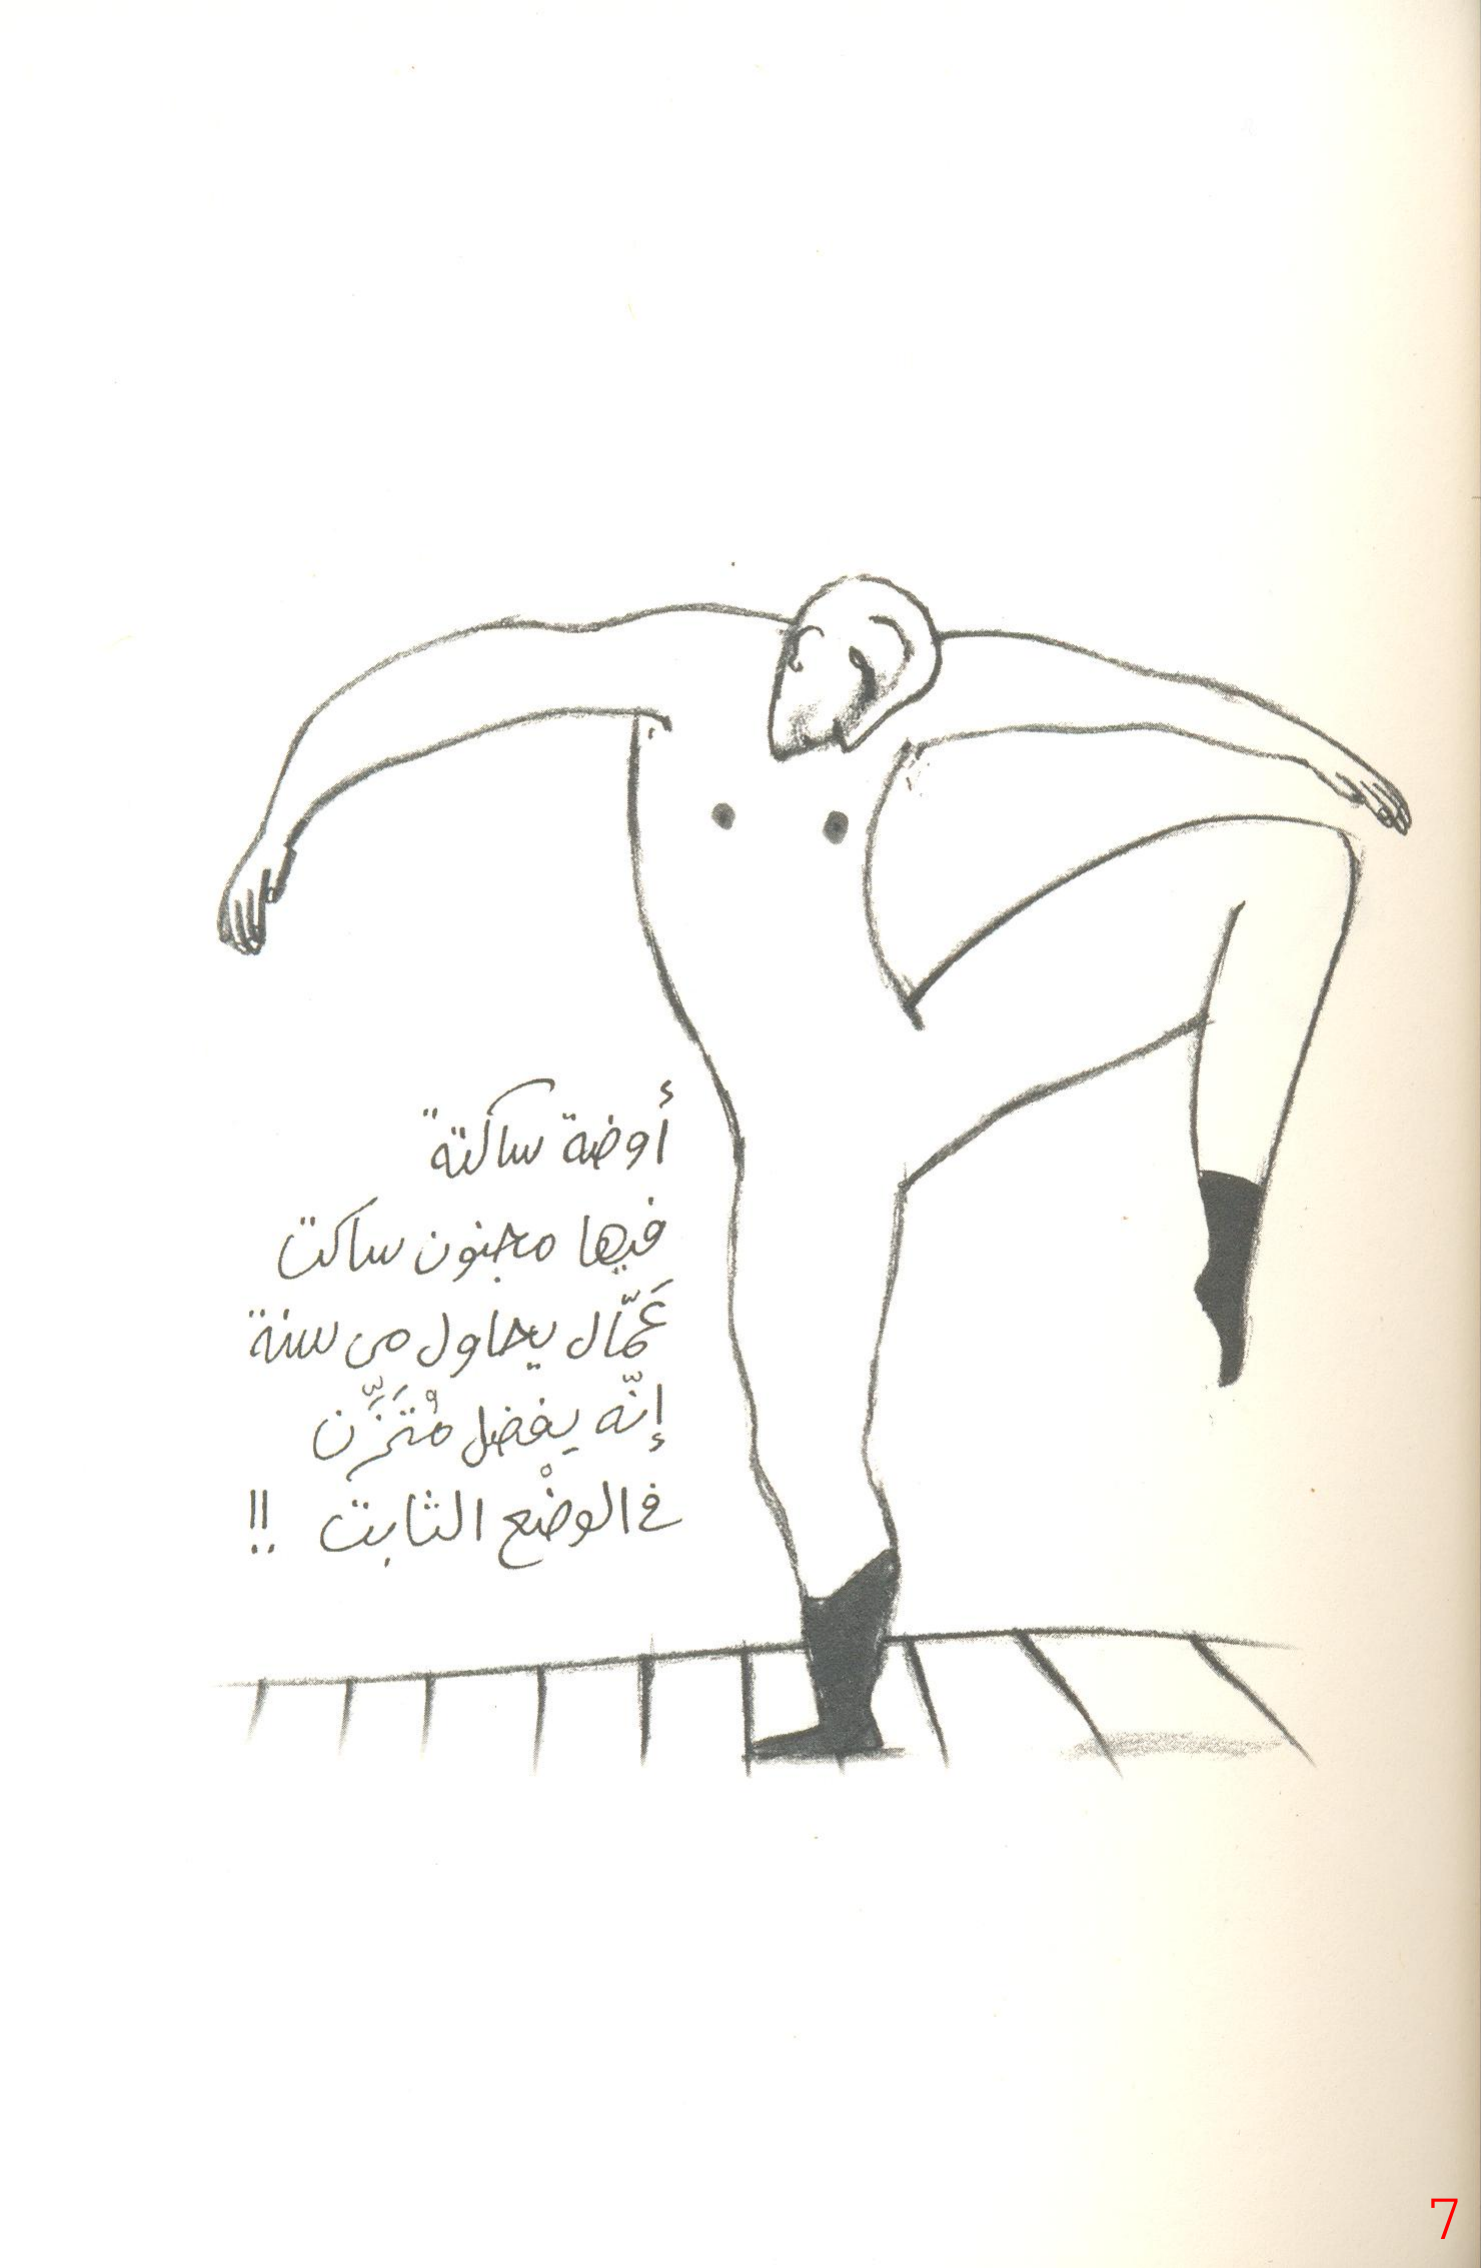 أوضة ساكتة
فيها مجنون ساكت
عَمّال يحاول من سنة
إنّه يفضل مُتَزِّن
في الوضْع الثابت !!
7